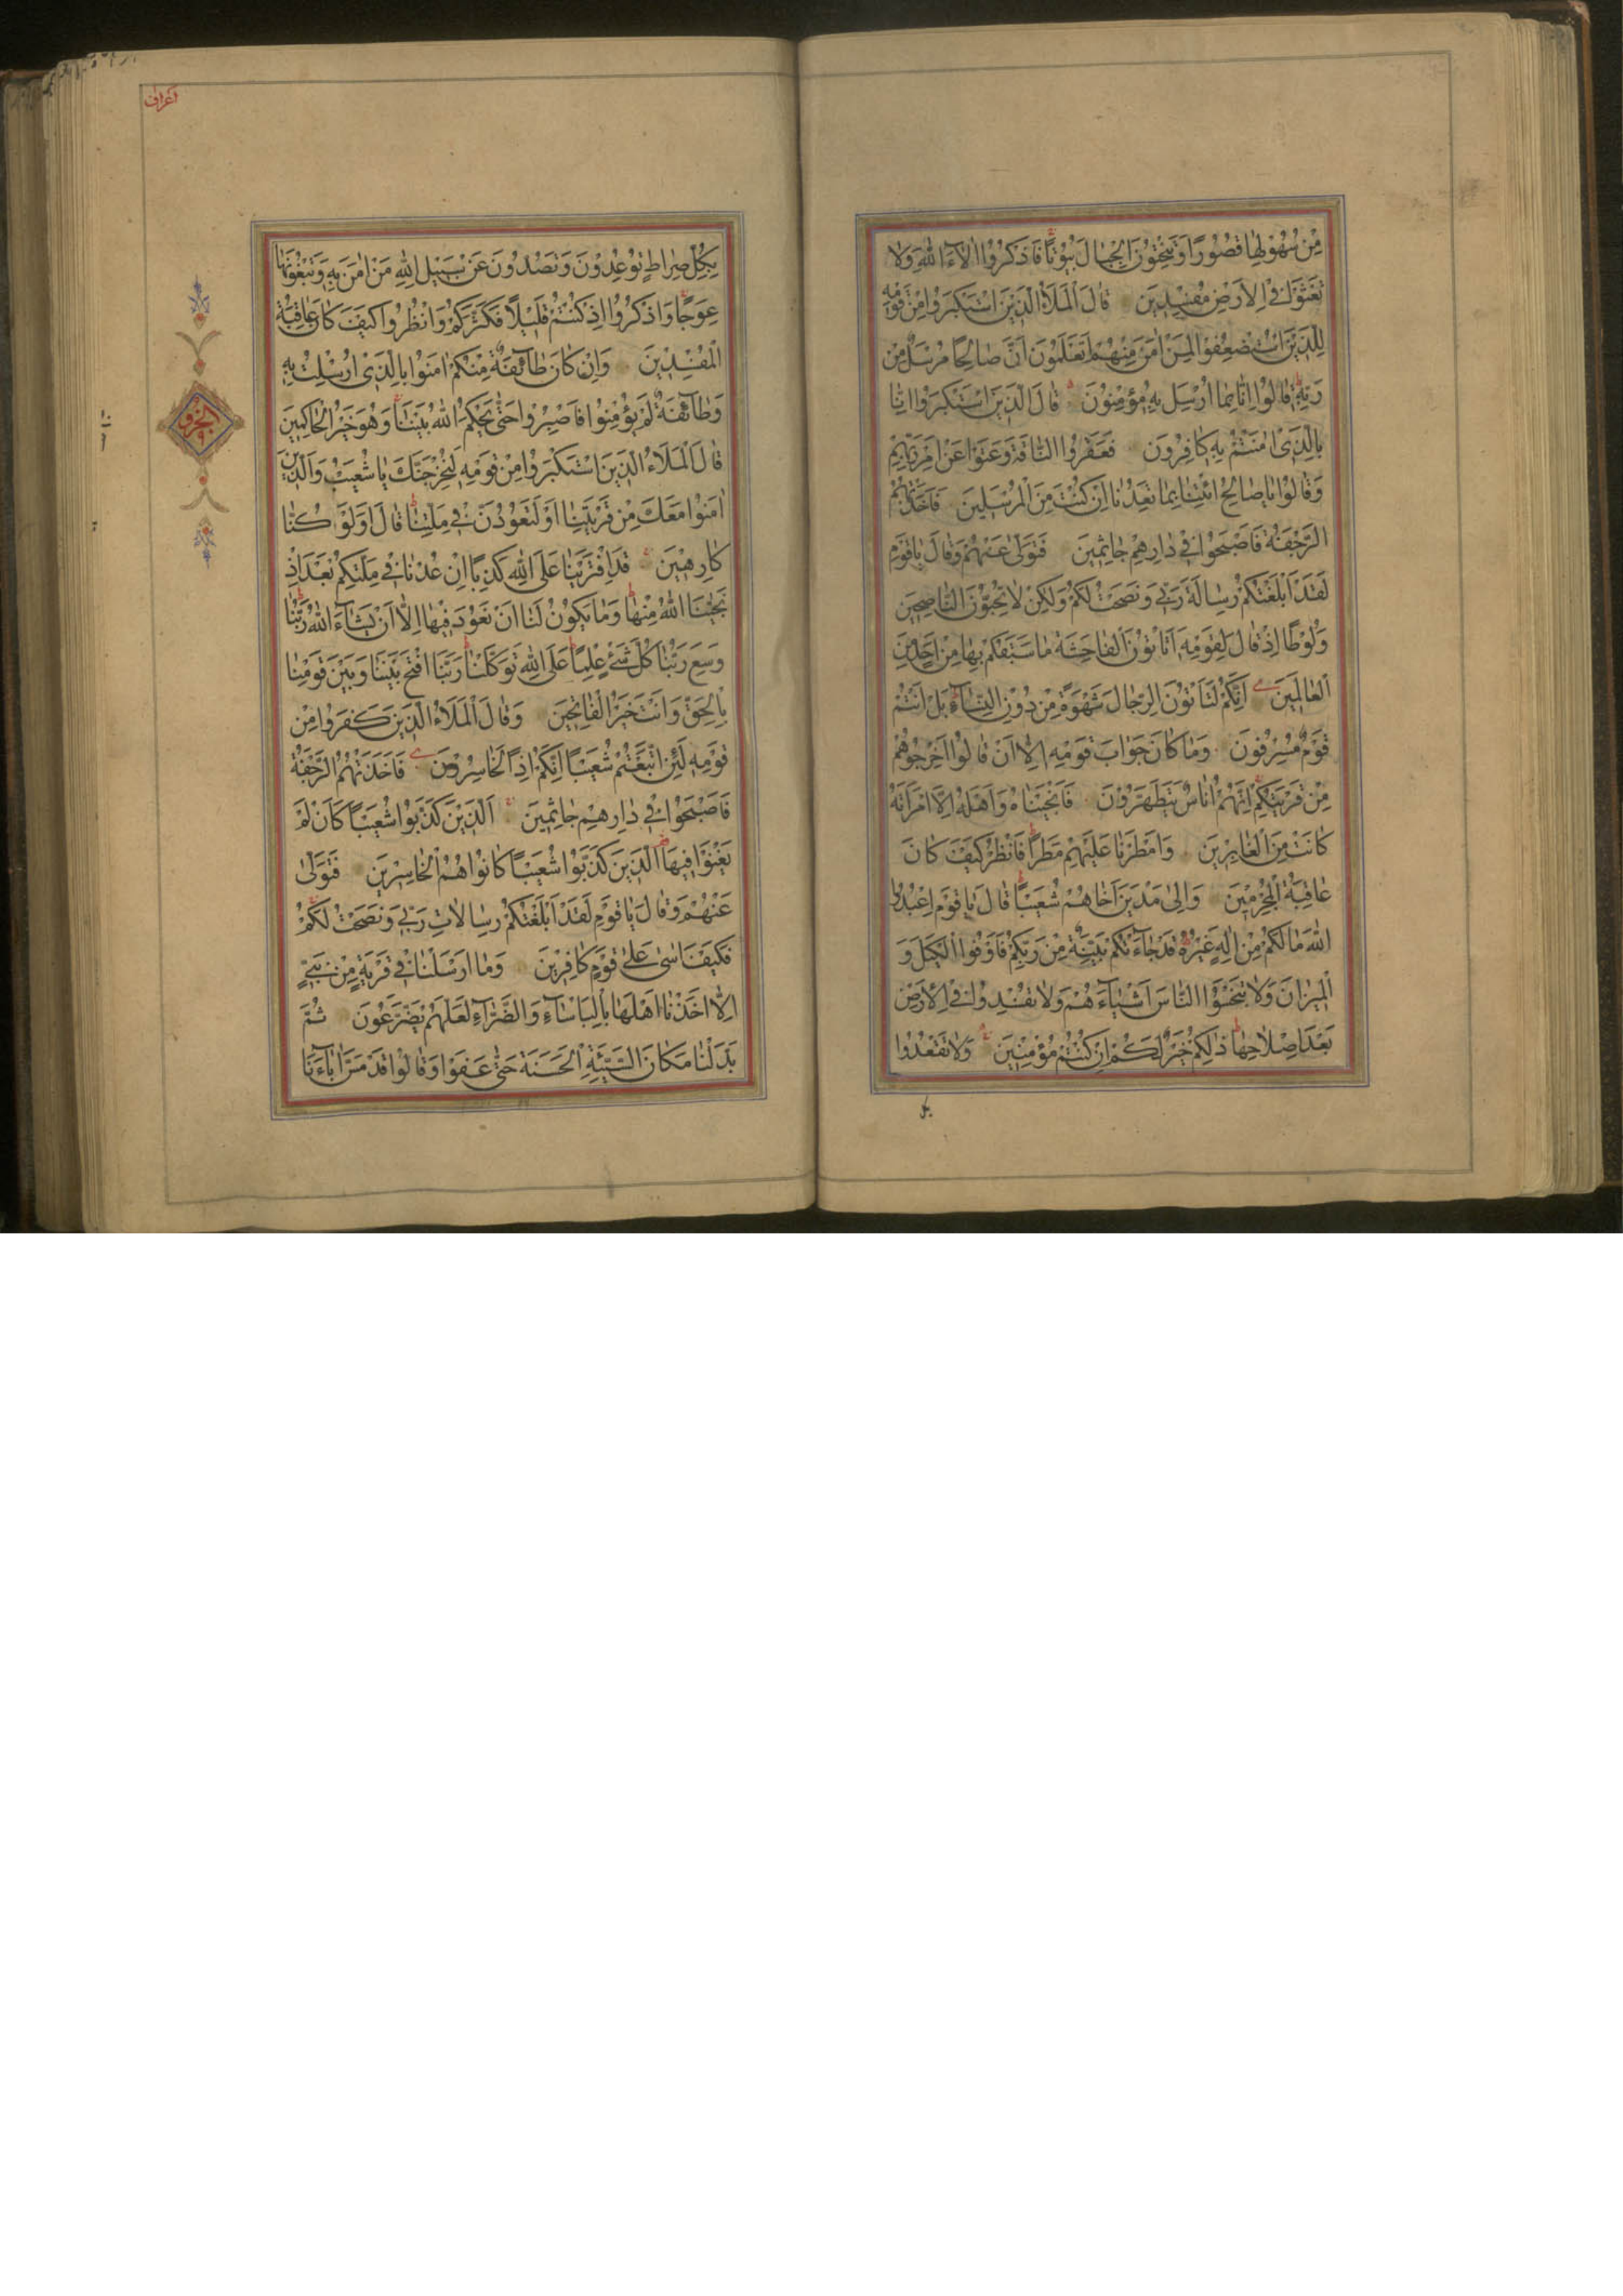 مِنْ سُهُولِهَا قُصُورًا وَتَنْحِتُونَ الْجِبَالَ بُيُوتًا فَاذْكُرُوا اٰلَآءَ اللّٰهِ وَلَا
تَعْثَوْا فِي الْاَرْضِ مُفْسِدِينَ قَالَ الْمَلَأُ الَّذِينَ اسْتَكْبَرُوا مِنْ قَوْمِهِ
لِلَّذِينَ اسْتُضْعِفُوا لِمَنْ اٰمَنَ مِنْهُمْ اَتَعْلَمُونَ اَنَّ صَالِحًا مُرْسَلٌ مِنْ
رَبِّهِ قَالُوا اِنَّا بِمَا اُرْسِلَ بِهِ مُؤْمِنُونَ قَالَ الَّذِينَ اسْتَكْبَرُوا اِنَّا
بِالَّذِي اٰمَنْتُمْ بِهِ كَافِرُونَ فَعَقَرُوا النَّاقَةَ وَعَتَوْا عَنْ اَمْرِ رَبِّهِمْ
وَقَالُوا يَا صَالِحُ ائْتِنَا بِمَا تَعِدُنَا اِنْ كُنْتَ مِنَ الْمُرْسَلِينَ فَاَخَذَتْهُمُ
الرَّجْفَةُ فَاَصْبَحُوا فِي دَارِهِمْ جَاثِمِينَ فَتَوَلّٰى عَنْهُمْ وَقَالَ يَا قَوْمِ
لَقَدْ اَبْلَغْتُكُمْ رِسَالَةَ رَبِّي وَنَصَحْتُ لَكُمْ وَلٰكِنْ لَا تُحِبُّونَ النَّاصِحِينَ
وَلُوطًا اِذْ قَالَ لِقَوْمِهِ اَتَأْتُونَ الْفَاحِشَةَ مَا سَبَقَكُمْ بِهَا مِنْ اَحَدٍ مِنَ
الْعَالَمِينَ اَئِنَّكُمْ لَتَأْتُونَ الرِّجَالَ شَهْوَةً مِنْ دُونِ النِّسَآءِ بَلْ اَنْتُمْ
قَوْمٌ مُسْرِفُونَ وَمَا كَانَ جَوَابَ قَوْمِهِ اِلَّا اَنْ قَالُوا اَخْرِجُوهُمْ
مِنْ قَرْيَتِكُمْ اِنَّهُمْ اُنَاسٌ يَتَطَهَّرُونَ فَاَنْجَيْنَاهُ وَاَهْلَهُ اِلَّا امْرَاَتَهُ
كَانَتْ مِنَ الْغَابِرِينَ وَاَمْطَرْنَا عَلَيْهِمْ مَطَرًا فَانْظُرْ كَيْفَ كَانَ
عَاقِبَةُ الْمُجْرِمِينَ وَاِلٰى مَدْيَنَ اَخَاهُمْ شُعَيْبًا قَالَ يَا قَوْمِ اعْبُدُوا
اللّٰهَ مَا لَكُمْ مِنْ اِلٰهٍ غَيْرُهُ قَدْ جَآءَتْكُمْ بَيِّنَةٌ مِنْ رَبِّكُمْ فَاَوْفُوا الْكَيْلَ وَ
الْمِيزَانَ وَلَا تَبْخَسُوا النَّاسَ اَشْيَآءَهُمْ وَلَا تُفْسِدُوا فِي الْاَرْضِ
بَعْدَ اِصْلَاحِهَا ذٰلِكُمْ خَيْرٌ لَكُمْ اِنْ كُنْتُمْ مُؤْمِنِينَ وَلَا تَقْعُدُوا
بكل
اعراف
الجزو
بِكُلِّ صِرَاطٍ تُوعِدُونَ وَتَصُدُّونَ عَنْ سَبِيلِ اللّٰهِ مَنْ اٰمَنَ بِهِ وَتَبْغُونَهَا
عِوَجًا وَاذْكُرُوا اِذْ كُنْتُمْ قَلِيلًا فَكَثَّرَكُمْ وَانْظُرُوا كَيْفَ كَانَ عَاقِبَةُ
الْمُفْسِدِينَ وَاِنْ كَانَ طَآئِفَةٌ مِنْكُمْ اٰمَنُوا بِالَّذِي اُرْسِلْتُ بِهِ
وَطَآئِفَةٌ لَمْ يُؤْمِنُوا فَاصْبِرُوا حَتّٰى يَحْكُمَ اللّٰهُ بَيْنَنَا وَهُوَ خَيْرُ الْحَاكِمِينَ
قَالَ الْمَلَاُ الَّذِينَ اسْتَكْبَرُوا مِنْ قَوْمِهِ لَنُخْرِجَنَّكَ يَا شُعَيْبُ وَالَّذِينَ
اٰمَنُوا مَعَكَ مِنْ قَرْيَتِنَا اَوْ لَتَعُودُنَّ فِي مِلَّتِنَا قَالَ اَوَلَوْ كُنَّا
كَارِهِينَ قَدِ افْتَرَيْنَا عَلَى اللّٰهِ كَذِبًا اِنْ عُدْنَا فِي مِلَّتِكُمْ بَعْدَ اِذْ
نَجّٰينَا اللّٰهُ مِنْهَا وَمَا يَكُونُ لَنَا اَنْ نَعُودَ فِيهَا اِلَّا اَنْ يَشَآءَ اللّٰهُ رَبُّنَا
وَسِعَ رَبُّنَا كُلَّ شَيْءٍ عِلْمًا عَلَى اللّٰهِ تَوَكَّلْنَا رَبَّنَا افْتَحْ بَيْنَنَا وَبَيْنَ قَوْمِنَا
بِالْحَقِّ وَاَنْتَ خَيْرُ الْفَاتِحِينَ وَقَالَ الْمَلَاُ الَّذِينَ كَفَرُوا مِنْ
قَوْمِهِ لَئِنِ اتَّبَعْتُمْ شُعَيْبًا اِنَّكُمْ اِذًا لَخَاسِرُونَ فَاَخَذَتْهُمُ الرَّجْفَةُ
فَاَصْبَحُوا فِي دَارِهِمْ جَاثِمِينَ اَلَّذِينَ كَذَّبُوا شُعَيْبًا كَاَنْ لَمْ
يَغْنَوْا فِيهَا اَلَّذِينَ كَذَّبُوا شُعَيْبًا كَانُوا هُمُ الْخَاسِرِينَ فَتَوَلّٰى
عَنْهُمْ وَقَالَ يَا قَوْمِ لَقَدْ اَبْلَغْتُكُمْ رِسَالَاتِ رَبِّي وَنَصَحْتُ لَكُمْ
فَكَيْفَ اٰسٰى عَلٰى قَوْمٍ كَافِرِينَ وَمَا اَرْسَلْنَا فِي قَرْيَةٍ مِنْ نَبِيٍّ
اِلَّا اَخَذْنَا اَهْلَهَا بِالْبَأْسَآءِ وَالضَّرَّآءِ لَعَلَّهُمْ يَضَّرَّعُونَ ثُمَّ
بَدَّلْنَا مَكَانَ السَّيِّئَةِ الْحَسَنَةَ حَتّٰى عَفَوْا وَقَالُوا قَدْ مَسَّ اٰبَآءَنَا